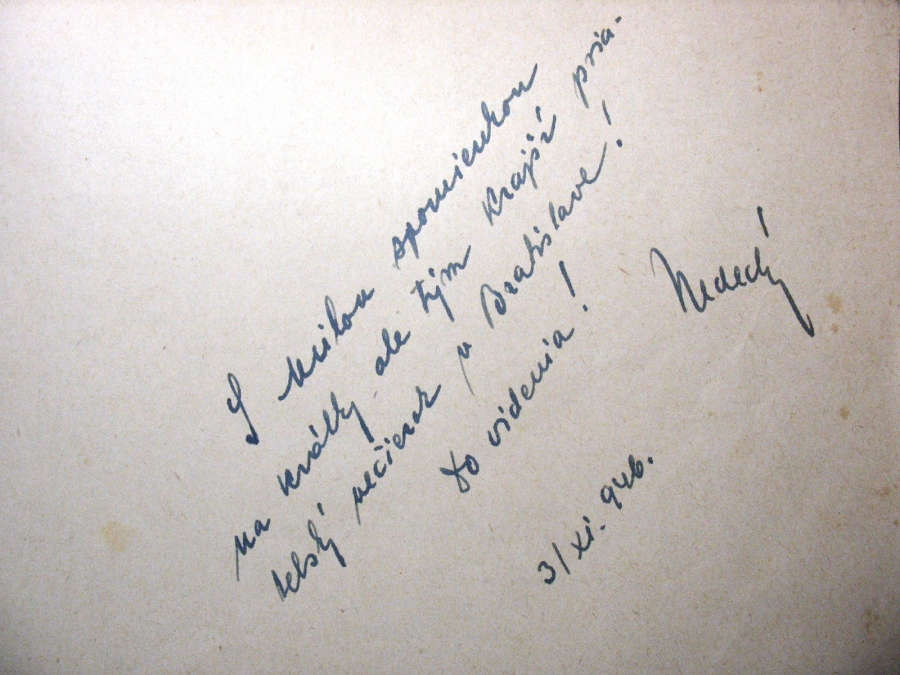 S milou spomienkou
na krátky ale tým krajší pria-
telský večierok v Bratislave!
Do videnia!
Nedecký
3/XI. 946.